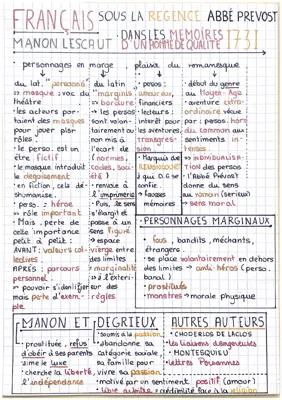 FRANÇAIS SOUS LA REGENCE ABBÉ PREVOST
MANON LESCAUT DANS LES MÉMOIRES D'UN HOMME DE QUALITÉ 1731
personnages en marge
plaisir du romanesque
du lat. "persona"
» masque : vox du
théâtre
» les acteurs por-
taient des masques
pour jouer plsr
rôles.
» le perso. est un
être fictif
» le masque introduit
le déguisement
» en fiction, cela dé-
shumanise.
» pers. : héros
» rôle important
» Mais, perte de
cette importance
petit à petit :
AVANT : valeurs col-
lectives.
APRÈS : parcours
personnel
» pouvoir s'identifier
mais perte d'exem-
du latin
"marginis"
» bordure
» les persos
sont volon-
tairement ou
non mis à
l'écart de
(normes,
codes, soci-
été)
» renvoie à
l'imprimerie
» Puis, le sens
s'élargit et
passe à un
sens figuré
» espace
vierge entre
des limites
» marginalité
» à l'extéri-
eur des
règles
» persos :
amoureux,
financiers
» lecteurs :
intérêt pour
les aventures,
transgres-
sion
» Marquis de
RENONCOURT
à qui D.G se
confie.
» fausses
mémoires
» début du genre
au Moyen-Age
» aventure extra-
ordinaire vécue
par des persos hors
du commun aux
sentiments in-
tenses
» individualisa-
tion des persos
» l'Abbé Prévost
donne du sens
au roman (sérieux)
» sens moral
PERSONNAGES MARGINAUX
» fous, bandits, méchants,
étrangers..
» se place volontairement en dehors
des limites → anti-héros (perso.
banal)
» prostituées
» monstres → morale physique
MANON ET DEGRIEUX
» prostituée, refus
d'obéir à ses parents
» aime le luxe
» cherche la liberté,
l'indépendance
» soumis à sa passion
» abandonne sa
catégorie sociale,
sa famille pour
vivre sa passion
» motivé par un sentiment positif (amour)
» libre arbitre
AUTRES AUTEURS
» CHODERLOS DE LACLOS
» les liaisons dangereuses
» MONTESQUIEU
» lettres Persannes
» crédibilité face à la religion